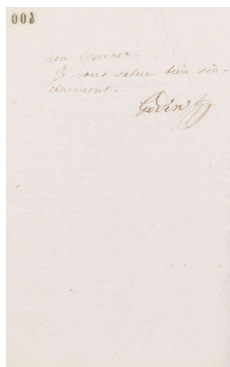 003
Je vous salue bien sin-
cèrement.
Godin